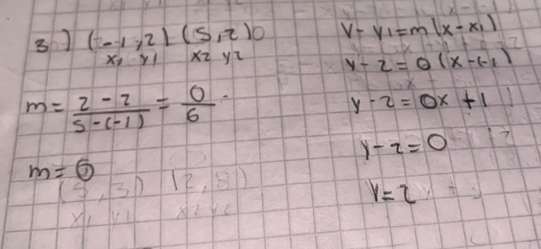 3) (-1,2) (5,2)
x1 y1 x2 y2
m= 2-2 / 5-(-1) = 0 / 6
m=0
y-y1=m(x-x1)
y-2=0(x-(-1)
y-2=0x+1
y-2=0
y=2